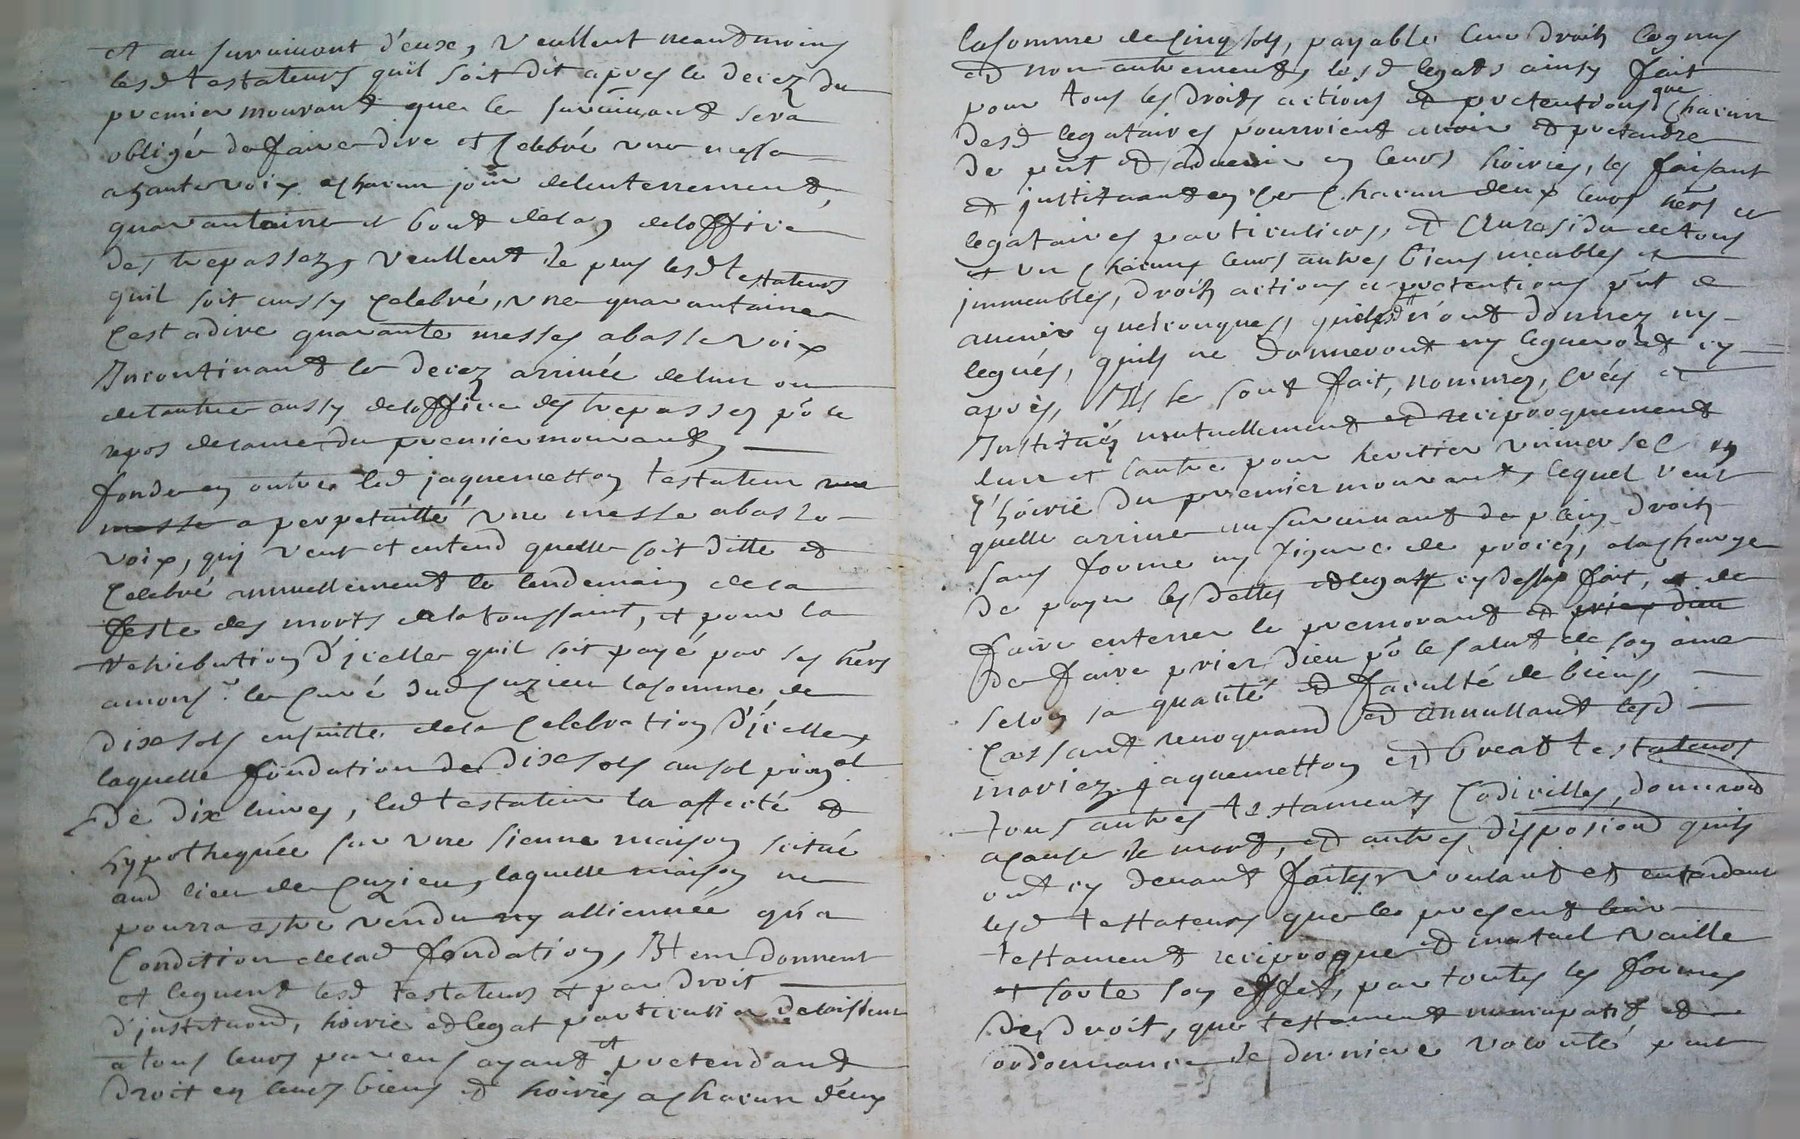 et au survivant d'eux, veullent neantmoins
lesd testateurs quil soit dit apres le decez du
premier mourant que le survivant sera
obligé de faire dire et celebré une messe
a haute voix a chacun jour de lenterrement,
quarantaine et bout de lan de loffice
des trepassez, veullent de plus lesd testateurs
quil soit aussy celebré, une quarantaine
cest a dire quarante messes a basse voix
Incontinant le decez arrivée de lun ou
de lautre aussy de loffice des trepassez po le
repos de lame du premier mourant,
fonde en outre led jaquemetton testateur une
messe a perpetuitté une messe a basse
voix, qui veut et entend quelle soit ditte et
celebré annuellement le lendemain de la
feste des morts de la toussaint, et pour la
retribution d'icelle quil soit payé par ses hers
a monsr le curé dud cuzieu la somme de
dix sols ensuitte de la celebration d'icelle,
laquelle fondation de dix sols au sol prinal
de dix livres, led testateur la affecté et
hypothequée sur une sienne maison scitué
aud lieu de cuzieu, laquelle maison ne
pourra estre vendu ny alliennée qu'a
condition de lad fondation, Item donnent
et leguent lesd testateurs et par droit
d'institu'ond, hoirie et legat particulier delaissent
a tous leurs parens ayant et pretendant
droit en leurs biens et hoiries a chacun d'eux
la somme de cinq sols, payable leur droit cognus
et non autrement, lesd legats ainsy fait
pour tous les droits actions et pretentions que chacun
desd legataires pourroient avoir et pretendre
de pnt et advenir en leurs hoiries, les faisant
et justituant en ce chacun deux leurs hers et
legataires particuliers, et au residu de tous
et un chacuns leurs autres biens meubles et
jmmeubles, droits actions et pretentions pnt et
avenir quelconques, quils n'ont donnez ny
legués, quils ne donneront ny legueront cy
apres, Ils se sont fait, nommez, créés et
Institués mutuellement et reciproquement
lun et lautre pour heritier universel en
l'hoirie du premier mourant, lequel veut
quelle arrive au survivant de plein droit
sans forme ny figure de procés, a la charge
de payer les dettes et legats cy dessus fait, et de
faire enterrer le premourant et prier dieu
de faire prier dieu po le salut de son ame
selon sa qualité et faculté de biens,
Cassant revoquand et annullant lesd
mariez jaquemetton et Breat testateurs
tous autres testaments codicilles, donnaons
a cause de mort, et autres disposiond quils
ont cy devant faites voulant et entendant
lesd testateurs que le present leur
testament reciproque et mutuel vaille
et sorte son effet, par toutes les formes
de droit, que testament nuncupatif et
ordonnance de derniere volonté peut